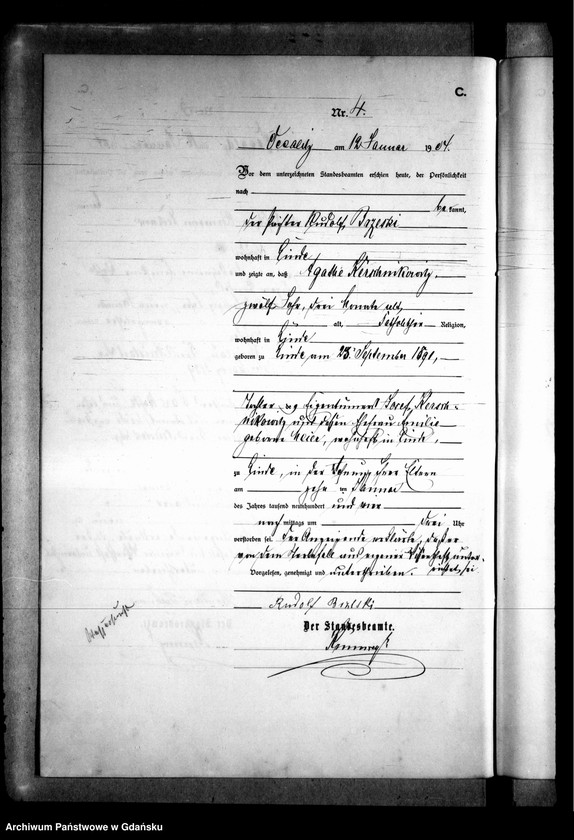 C.
Nr. 4.
am 12 Januar 1904.
Vor dem unterzeichneten Standesbeamten erschien heute, der Persönlichkeit
nach
be kannt,
der Rudolf Brzeski
wohnhaft in Linde
und zeigte an, daß Agathe Kerschnikowitz,
zwölf Jahr, drei Monate alt,
alt, katholischer Religion,
wohnhaft in Linde
geboren zu Linde am 23. September 1891,
Tochter Josef Kersch-
nikowitz und dessen Ehefrau Emilie
geborene wohnhaft in Linde,
zu Linde, in der Wohnung ihrer Eltern
am zehn ten Januar
des Jahres tausend neunhundert und vier
nach mittags um drei Uhr
verstorben sei. Der Anzeigende erklärte, daß er
von dem Sterbefalle aus eigener Wissenschaft unter-
richtet sei
Vorgelesen, genehmigt und unterschrieben.
Rudolf
Der Standesbeamte.
Archiwum Państwowe w Gdańsku